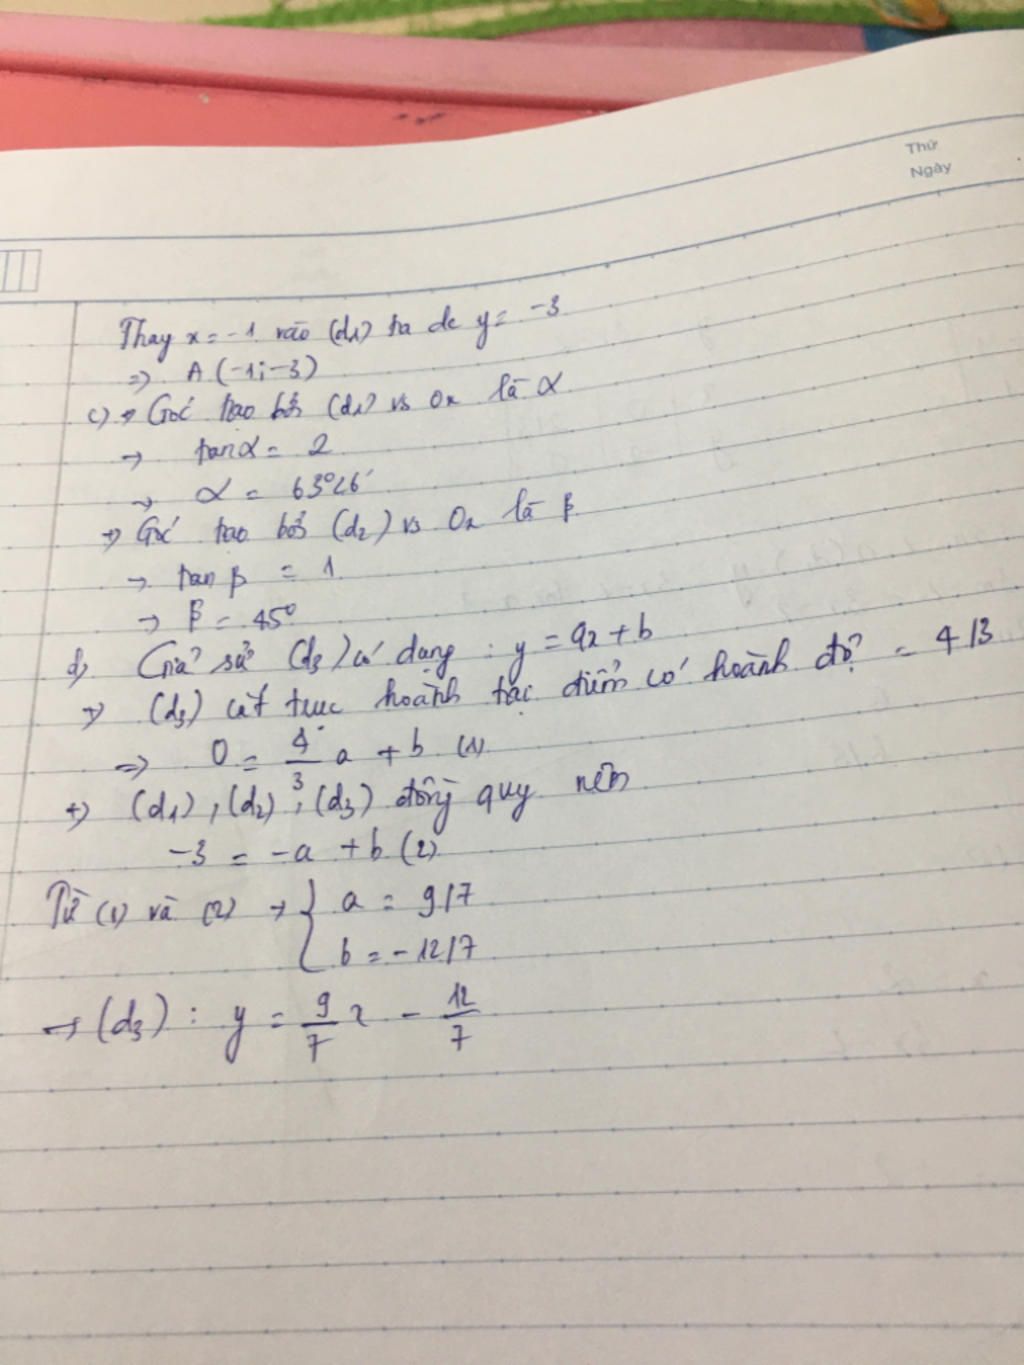 Thứ
Ngày
Thay x = -1 vào (d1) ta dc y = -3
=> A (-1; -3)
c) + Góc tạo bởi (d1) vs Ox là α
→ tanα = 2
→ α = 63°26'
+) Góc tạo bởi (d2) vs Ox là β
→ tan β = 1
→ β = 45°
d) Giả sử (d3) có dạng : y = ax + b
+) (d3) cắt trục hoành tại điểm có hoành độ = 4/3
=> 0 = 4/3 a + b (1)
+) (d1), (d2), (d3) đồng quy nên
-3 = -a + b (2)
Từ (1) và (2) → { a = 9/7
b = -12/7
→ (d3) : y = 9/7 x - 12/7